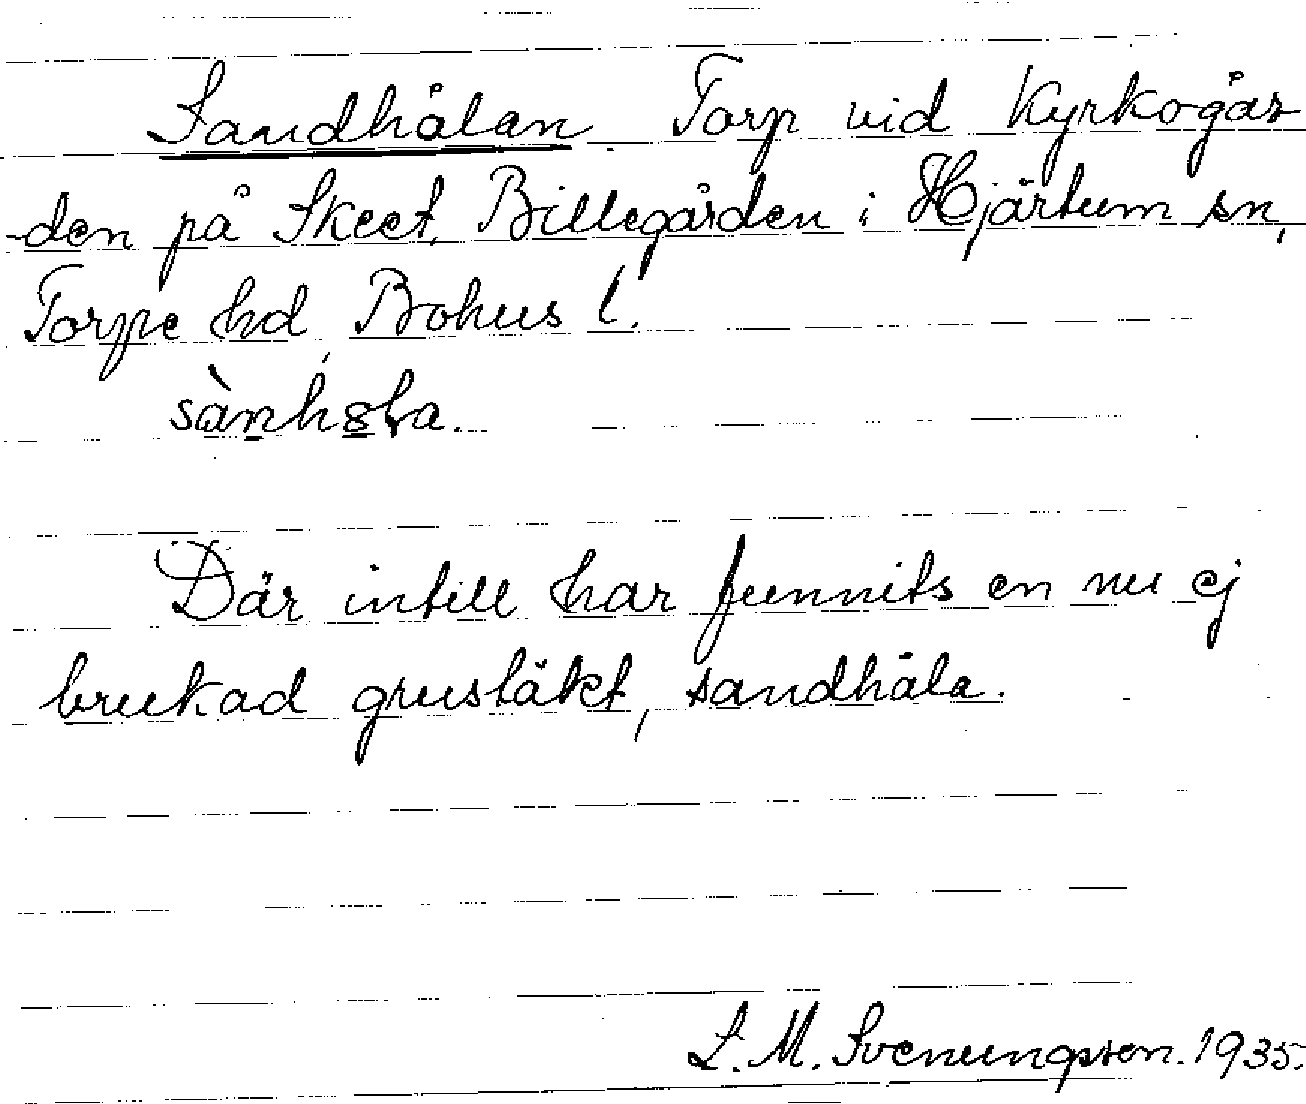 Sandhålan Torp vid Kyrkogår
-den på Skeet, Billegården i Hjärtum sn,
Torpe hd, Bohus l.
sànhɵla.
Där intill har funnits en nu ej
brukad grustäkt, sandhåla.
L. M. Svenungsson. 1935.